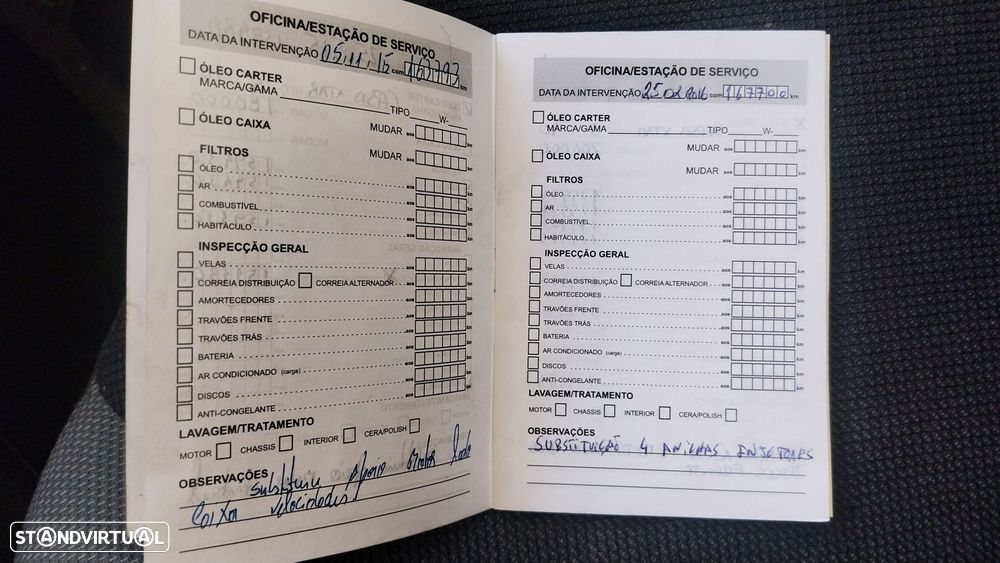 OFICINA/ESTAÇÃO DE SERVIÇO
DATA DA INTERVENÇÃO 05.11.15 com 163793 km
ÓLEO CARTER
MARCA/GAMA TIPO W-
MUDAR aos km
ÓLEO CAIXA
MUDAR aos km
FILTROS
ÓLEO aos km
AR aos km
COMBUSTÍVEL aos km
HABITÁCULO aos km
INSPECÇÃO GERAL
VELAS aos km
CORREIA DISTRIBUIÇÃO CORREIA ALTERNADOR aos km
AMORTECEDORES aos km
TRAVÕES FRENTE aos km
TRAVÕES TRÁS aos km
BATERIA aos km
AR CONDICIONADO (carga) aos km
DISCOS aos km
ANTI-CONGELANTE aos km
LAVAGEM/TRATAMENTO
MOTOR CHASSIS INTERIOR CERA/POLISH
OBSERVAÇÕES Substituiu Apoio Motor lado
Caixa velocidades
OFICINA/ESTAÇÃO DE SERVIÇO
DATA DA INTERVENÇÃO 25 02 2016 com 167700 km
ÓLEO CARTER
MARCA/GAMA TIPO W-
MUDAR aos km
ÓLEO CAIXA
MUDAR aos km
FILTROS
ÓLEO aos km
AR aos km
COMBUSTÍVEL aos km
HABITÁCULO aos km
INSPECÇÃO GERAL
VELAS aos km
CORREIA DISTRIBUIÇÃO CORREIA ALTERNADOR aos km
AMORTECEDORES aos km
TRAVÕES FRENTE aos km
TRAVÕES TRÁS aos km
BATERIA aos km
AR CONDICIONADO (carga) aos km
DISCOS aos km
ANTI-CONGELANTE aos km
LAVAGEM/TRATAMENTO
MOTOR CHASSIS INTERIOR CERA/POLISH
OBSERVAÇÕES
SUBSTITUIÇÃO 4 ANILHAS INJETORES
STANDVIRTUAL